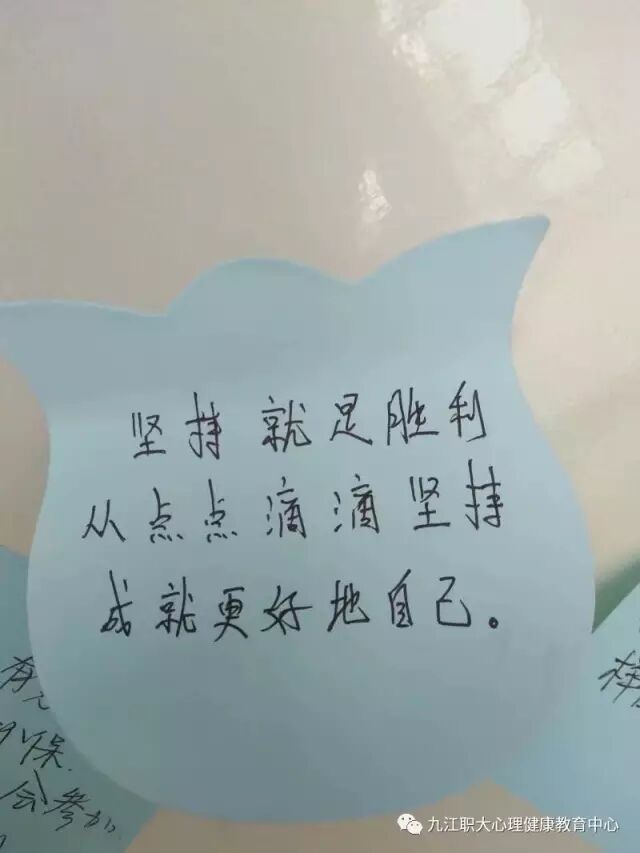 坚持就是胜利
从点点滴滴坚持
成就更好地自己。
会参加
九江职大心理健康教育中心